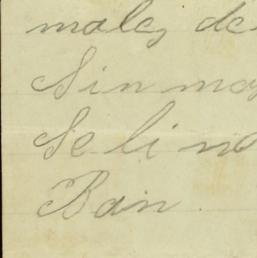 males de
Sin mas
Se li no
Bain.